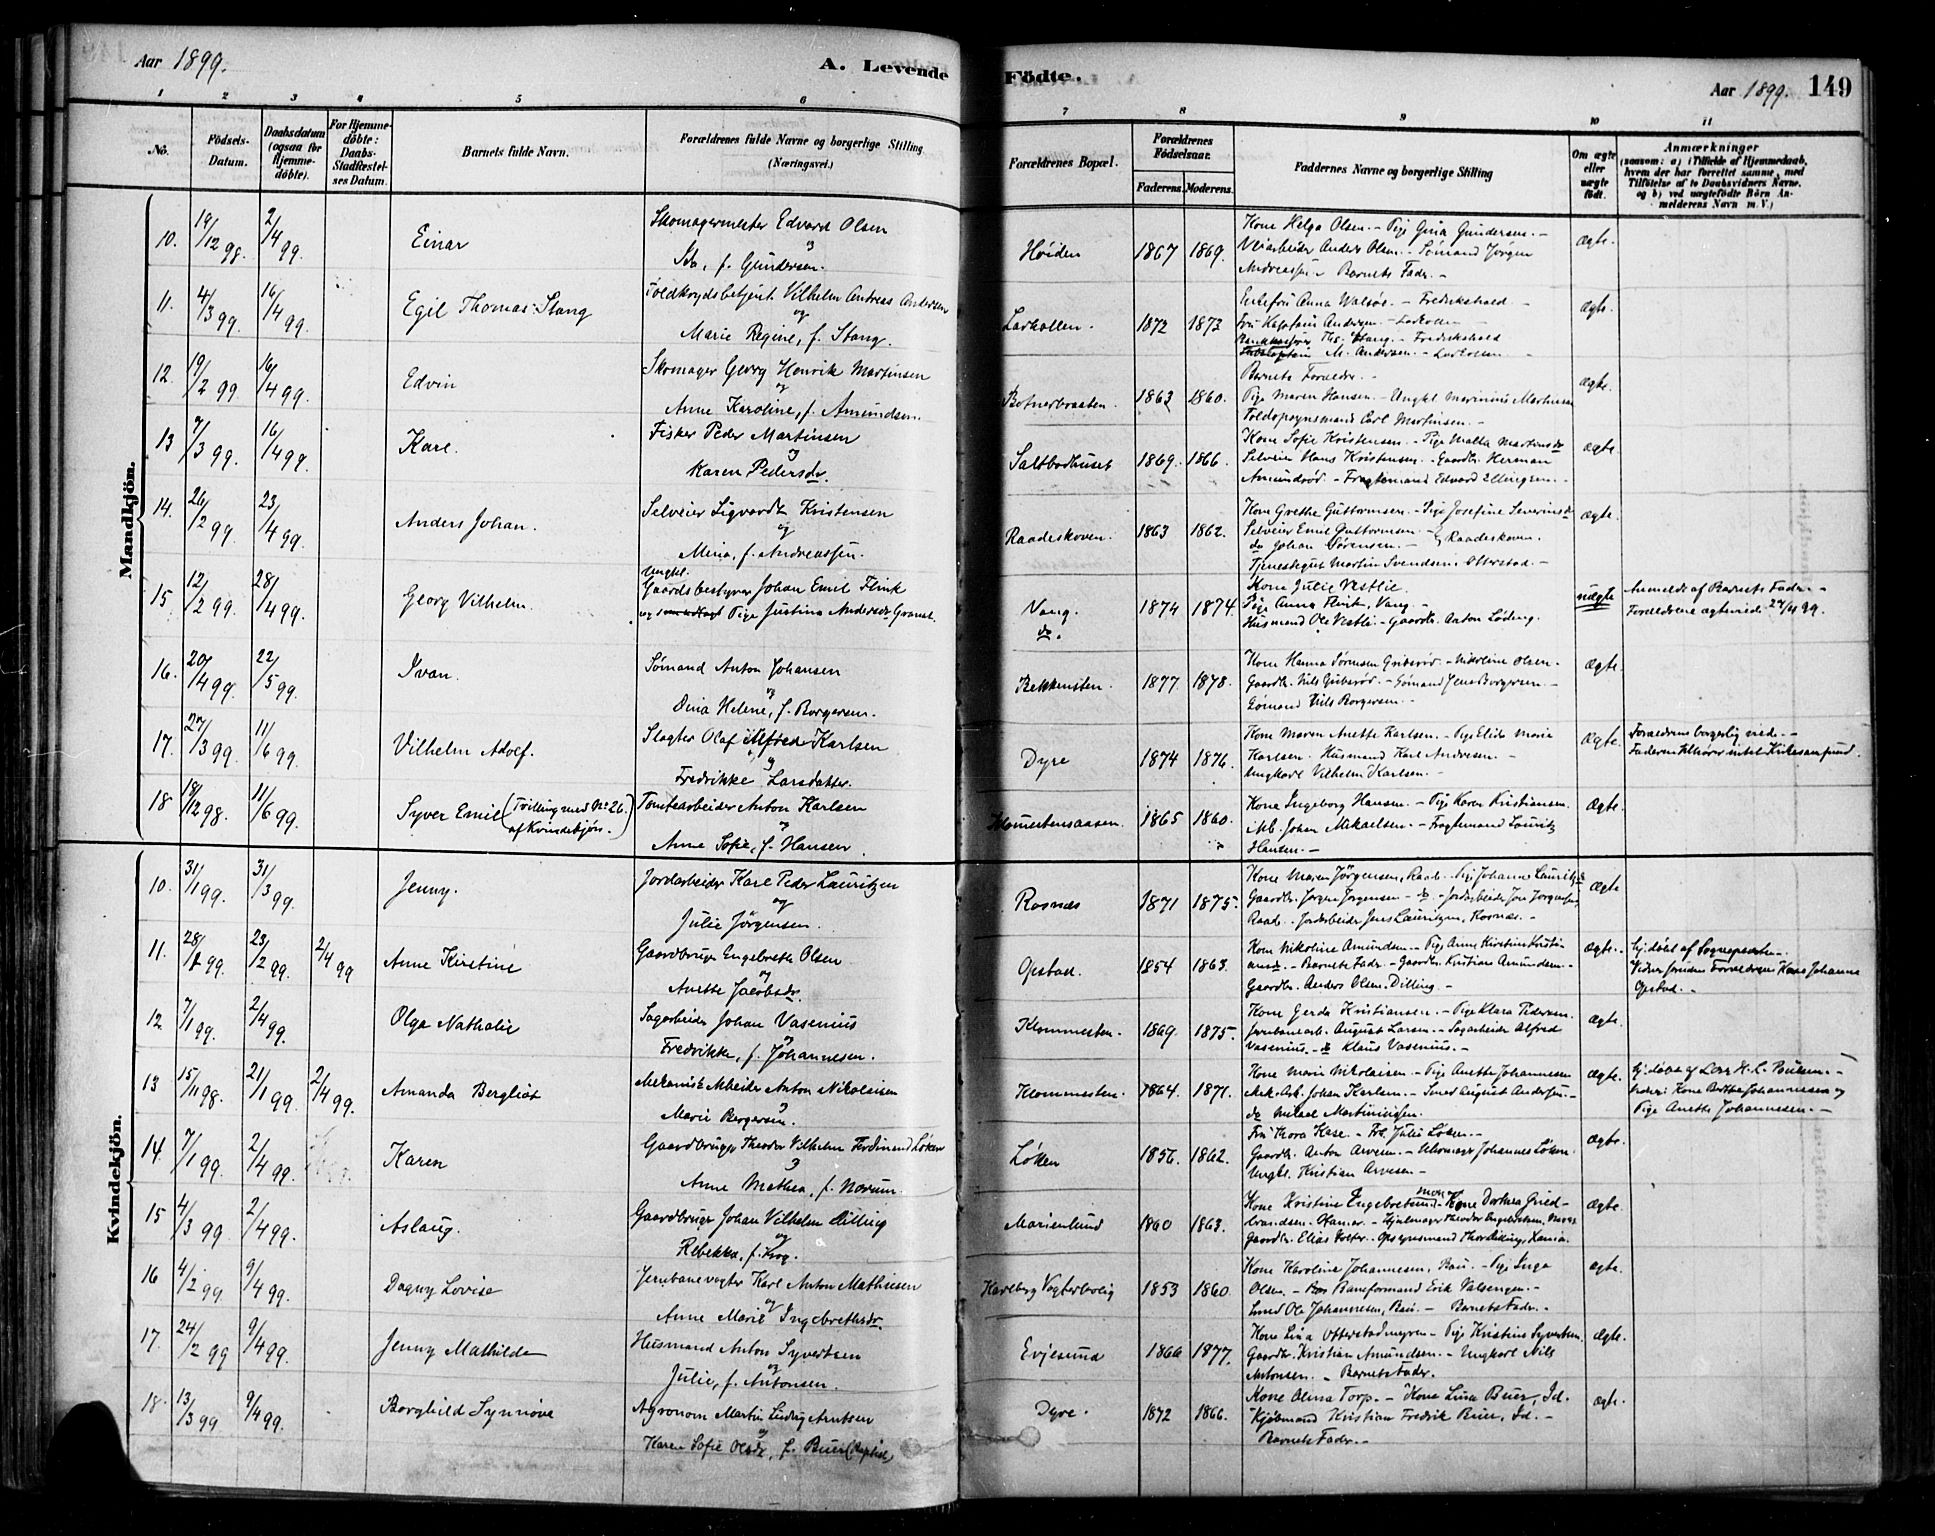 Aar 1899.
A. Levende Födte.
Aar 1899. 149
1 2 3 4 5 6 7 8 9 10 11
No.
Födsels-Datum.
Daabsdatum (ogsaa for hjemmedöbte).
For Hjemmedöbte: Daabs-Stadfæstelses Datum.
Barnets fulde Navn.
Forældrenes fulde Navne og borgerlige Stilling (Næringsvei.)
Forældrenes Bopæl.
Forældrenes Födselsaar.
Faderens. Moderens.
Faddernes Navne og borgerlige Stilling
Om ægte eller uægte födt.
Anmærkninger
(saasom: a) i Tilfælde af Hjemmedaab, hvem der har forrettet samme, med Tilföielse af to Daabsvidners Navne, og b) ved uægtefödte Börn Anmelderens Navn m. V.)
Mandkjön.
10. 19/12 98. 2/4 99. Einar
Skomagermester Edvard Olsen
og
f. Gundersen.
Høiden 1867 1869.
Kone Helga Olsen. - Pige Gina Gundersen. -
Veiarbeider Anders Olsen. - Sømand Jørgen
Andreassen - Barnets Fader. -
ægte.
11. 4/3 99. 16/4 99. Egil Thomas Stang
Vilhelm Andreas Andersen
og
Marie Regine, f. Stang.
Larkollen. 1872 1873
Enkefru Anna Walsøe. - Fredrikshald -
Fru Kaptain Andersen. - Larkollen
Ths. Stang. - Fredrikshald
M. Andersen. - Larkollen
Barnets Forældre. -
ægte.
12. 19/2 99 16/4 99. Edvin
Skomager Georg Henrik Martinsen
og
Anne Karoline, f. Amundsen.
Botnerbraaten. 1863 1860.
Pige Maren Hansen. - Ungkl Marinius Martinsen
Toldopsynsmand Carl Martinsen. -
ægte.
13 7/3 99. 16/4 99. Karl.
Fisker Peder Martinsen
og
Karen Pedersdr.
Saltbodhuset 1869. 1866.
Kone Sofie Kristensen. - Pige Malla Martinsdr
Selveier Hans Kristensen. - Gaardbr. Herman
Amundrød. - Fragtemand Edvard Ellingsen. -
ægte.
14. 26/2 99 23/4 99. Anders Johan.
Selveier Sigvardt Kristensen
og
Mina, f. Andreassen.
Raadeskoven. 1863 1862.
Kone Grethe Guttormsen. - Pige Josefine Severinsdr
Selveier Emil Guttormsen -
do Johan Sørensen. - Raadeskoven.
Tjenestegut Martin Svendsen, Otterstad. -
ægte.
15 12/2 99. 28/4 99. Georg Vilhelm.
Ungkl.
Gaardsbestyrer Johan Emil Flink
og Pige Justina Andersdr Granat.
Vang. do. 1874 1874.
Kone Julie Vestlie.
Pige Anna Flink, Vang. -
Husmand Ole Vestli. - Gaardbr. Anton Løding.
uægte
Anmeldt af Barnets Fader. -
Forældrene ægteviede 29/4 99.
16. 20/4 99. 22/5 99. Ivan.
Sømand Anton Johansen
og
Dina Helene, f. Borgersen.
Bekkensten. 1877. 1878.
Kone Hanna Sørensen Griberød. - Nikoline Olsen.
Gaardbr. Nils Griberød. - Sømand Jens Borgersen. -
Sømand Nils Borgersen. -
ægte.
17. 27/3 99. 11/6 99. Vilhelm Adolf.
Slagter Olaf Alfred Karlsen
og
Fredrikke Larsdatter.
Dyre 1874 1876.
Kone Maren Anette Karlsen. - Pige Elida Marie
Karlsen. Husmand Karl Andresen. -
Ungkarl Vilhelm Karlsen. -
ægte.
Forældrene borgerlig viede. -
Faderen tilhører intet Kirkesamfund.
18 18/12 98. 11/6 99. Syver Emil (Tvilling med No 26. af Kvindekjøn.)
Tomtearbeider Anton Karlsen
og
Anne Sofie, f. Hansen
Klommestensaasen. 1865 1860.
Kone Ingeborg Hansen. - Pige Karen Kristiansen.
Johan Mikaelsen. - Fragtemand Lauritz
Hansen. -
ægte.
Kvindekjön.
10. 31/1 99. 31/3 99. Jenny.
Jordarbeider Karl Peder Lauritzen
og
Julie Jörgensen.
Rosnæs 1871 1875.
Kone Maren Jörgensen, Raab. Pige Johanne Lauritzdr
Gaardbr. Jørgen Jorgensen - do - Jordarbeider Jon Jorgensen,
Raab. Jordarbeider Jens Lauritzen, Rosnæs. -
Ægte
11. 28/1 99. 23/2 99. 2/4 99 Anne Kirstine
Gaardbruger Engebreth Olsen
og
Anette Jacobsdr.
Opstad. 1854 1863.
Kone Nikoline Amundsen. - Pige Anne Kirstine Kristi-
ansdr. - Barnets Fader - Gaardbr. Kristian Amundsen. -
Gaardbr. Anders Olsen, Dilling. -
ægte.
Hj. døbt af Sognepræsten. -
Vidner foruden Forældrene Kone Johanne
Opstad. -
12 7/1 99. 2/4 99. Olga Nathalie
Sagarbeider Johan Vasenius
og
Fredrikke, f. Johannesen.
Klommesten. 1869. 1875.
Kone Gerda Kristiansen. - Pige Klara Pedersen.
Jernbanearb. August Larsen. - Sagarbeider Alfred
Vasenius. - do Klaus Vasenius. -
ægte.
13 15/11 98. 21/1 99. 2/4 99. Amanda Bergliot
Mekanisk Arbeider Anton Nikolaisen
og
Marie Borgersen.
Klommesten. 1864. 1871.
Kone Marie Nikolaisen. - Pige Anette Johannesen
Mek. Arb. Johan Karlsen. - Smed August Andersen. -
do Mikael Martiniussen.
ægte.
Hj. døbt af H. L. Poulsen. -
Kone Johannesen og
Pige Anette Johannesen. -
14. 7/1 99. 2/4 99. Karen
Gaardbruger Theodor Vilhelm Ferdinand Løken
og
Anne Mathea, f. Norum.
Løken 1856. 1862.
Fru Thora Kase. - Frk. Julie Løken. -
Gaardbr. Anton Arvesen. - Johannes Løken.
Ungkl. Kristian Arvesen -
ægte.
15 4/3 99 2/4 99. Aslaug.
Gaardbruger Johan Vilhelm Dilling
og
Rebekka, f. Krog.
Marienlund 1860 1863.
Kone Kristine Engebretsen, Moss - Kone Dorthea Gud-
brandsen. Hamar. - Hjulmager Theodor Engebretsen, Moss
Gaardbr. Elias Opsynsmand Thor
ægte.
16 4/2 99. 9/4 99. Dagny Lovise
Jernbanevogter Karl Anton Mathisen
og
Anne Marie Ingebrethsdr.
Karlborg Vogterbolig 1853 1860.
Kone Karoline Johannesen, Bau. - Pige Inga
Olsen. - Banformand Erik
Smed Ole Johannesen, Bau. - Barnets Fader. -
ægte.
17. 24/2 99 9/4 99. Jenny Mathilde
Husmand Anton Syvertsen
og
Julie, f. Antonsen.
Evjesund 1866 1877.
Kone Lina Otterstadmyren - Pige Kristine Syvertsen.
Gaardbr. Kristian Amundsen. - Ungkarl Nils
Antonsen. - Barnets Fader.
Ægte.
18. 13/3 99 9/4 99. Borghild Synnøve
Agronom Martin Ludvig Arntsen
og
Karen Sofie Olsdr, f. Buer
Dyre. 1872 1866.
Kone Olina Torp. - Kone Lina Buer, Id.
Kjøbmand Kristian Fredrik Buer, Id. -
Barnets Fader. -
ægte.